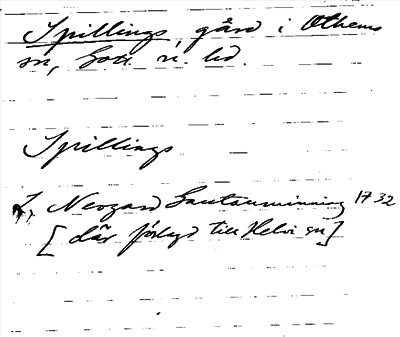 Spillings, gård i Othems
sn, Gotl. n. hd.
Spillings
Neogard Gautauminning 1732
[där förlagd till Helvi sn]